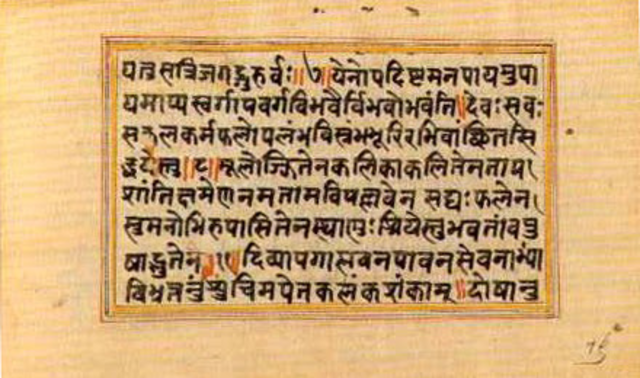 यत्र सत्रिजगद्गुरुर्वः॥७॥येनोपदिष्टमनपायमुपा
यमाप्य स्वर्गापवर्गविभवैर्विभवोभवंति॥देवः सवः
सकलकर्मफलोपलंभविस्रंभभूरिरभिवांछितसि
द्धयेस्तु॥८॥मूलोज्झितेनकलिकाकलितेनताप
शांतिक्षमेणनमतामविपल्लवेन सद्यः फलेन
सुमनोभिरुपासितेनस्थाणुः श्रियेस्तुभवतांवपु
षाद्भुतेन॥९॥दिव्यापगास्नवनपावनसेवनाभ्यां
बिभ्रत्तनुं शुचिमपेतकलंकशंकाम्॥दोषानु